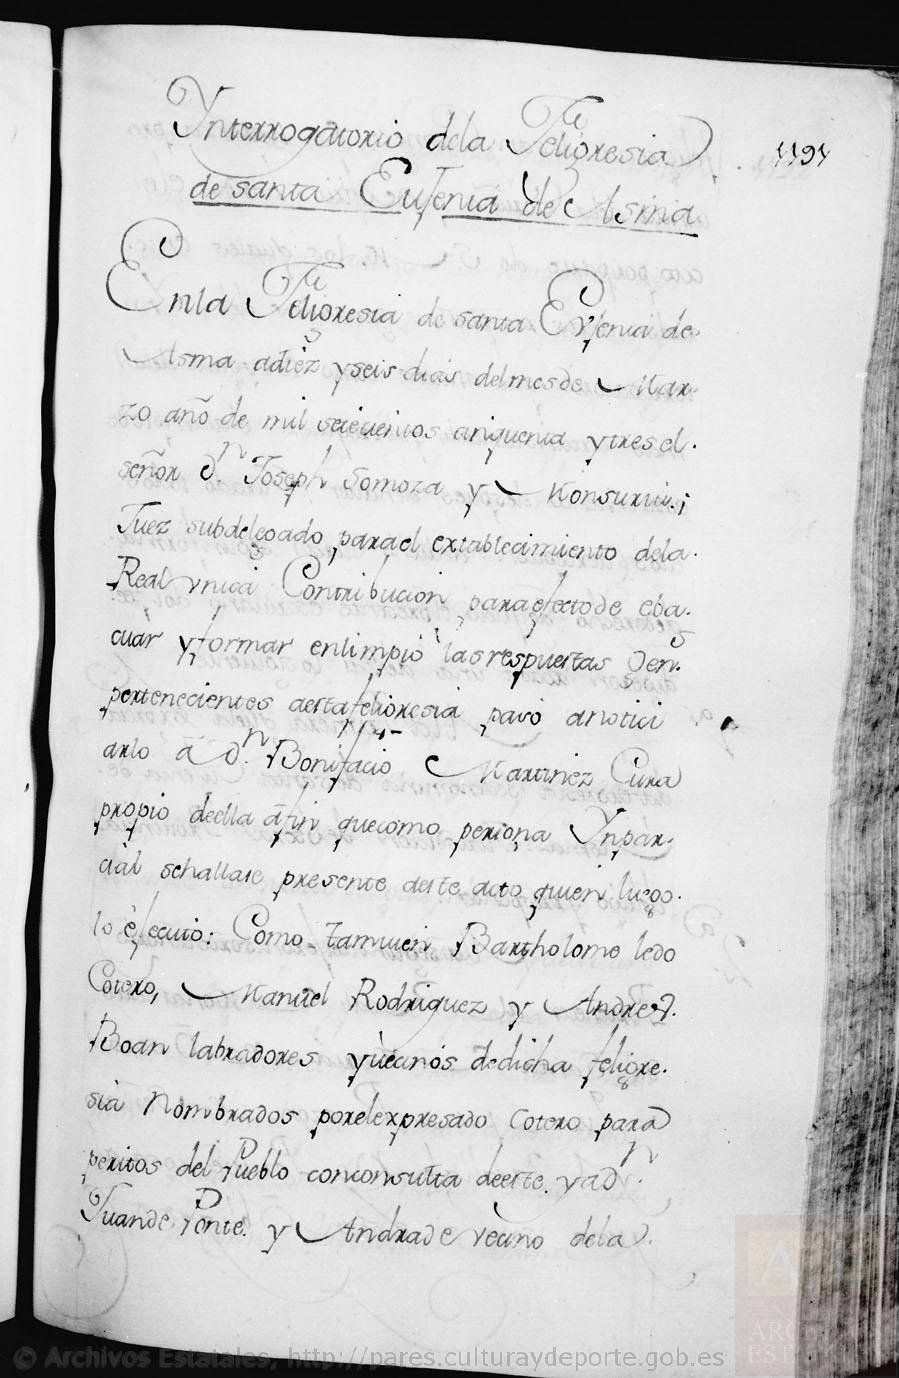 Ynterrogatorio dela Feligresia
1191
de santa Eufenia de Asma
Enla Feligresia de santa Eufenia de
Asma adiez y seis dias del mes de Mar
zo año de mil setecientos cinquenta y tres el
señor Dn. Joseph Somoza y Monsuriu
Juez subdelegado para el extablecimiento dela
Real vnica Contribucion para efecto de eba
cuar y formar enlimpio las respuestas Gen.
pertenecientes aesta feligresia paso anotici
arlo a Dn. Bonifacio Martinez Cura
propio deella afin quecomo persona Ynpar
cial sehallase presente aeste acto quien luego
lo efecuto: Como tamuien Bartholome ledo
Cotero, Manuel Rodriguez y Andres
Boan labradores y uecinos dedicha feligre
sia Nombrados porelexpresado Cotero para
peritos del Pueblo conconsulta deeste. y a Dn.
Juan de Ponte y Andrade vecino dela
© Archivos Estatales, http://pares.culturaydeporte.gob.es